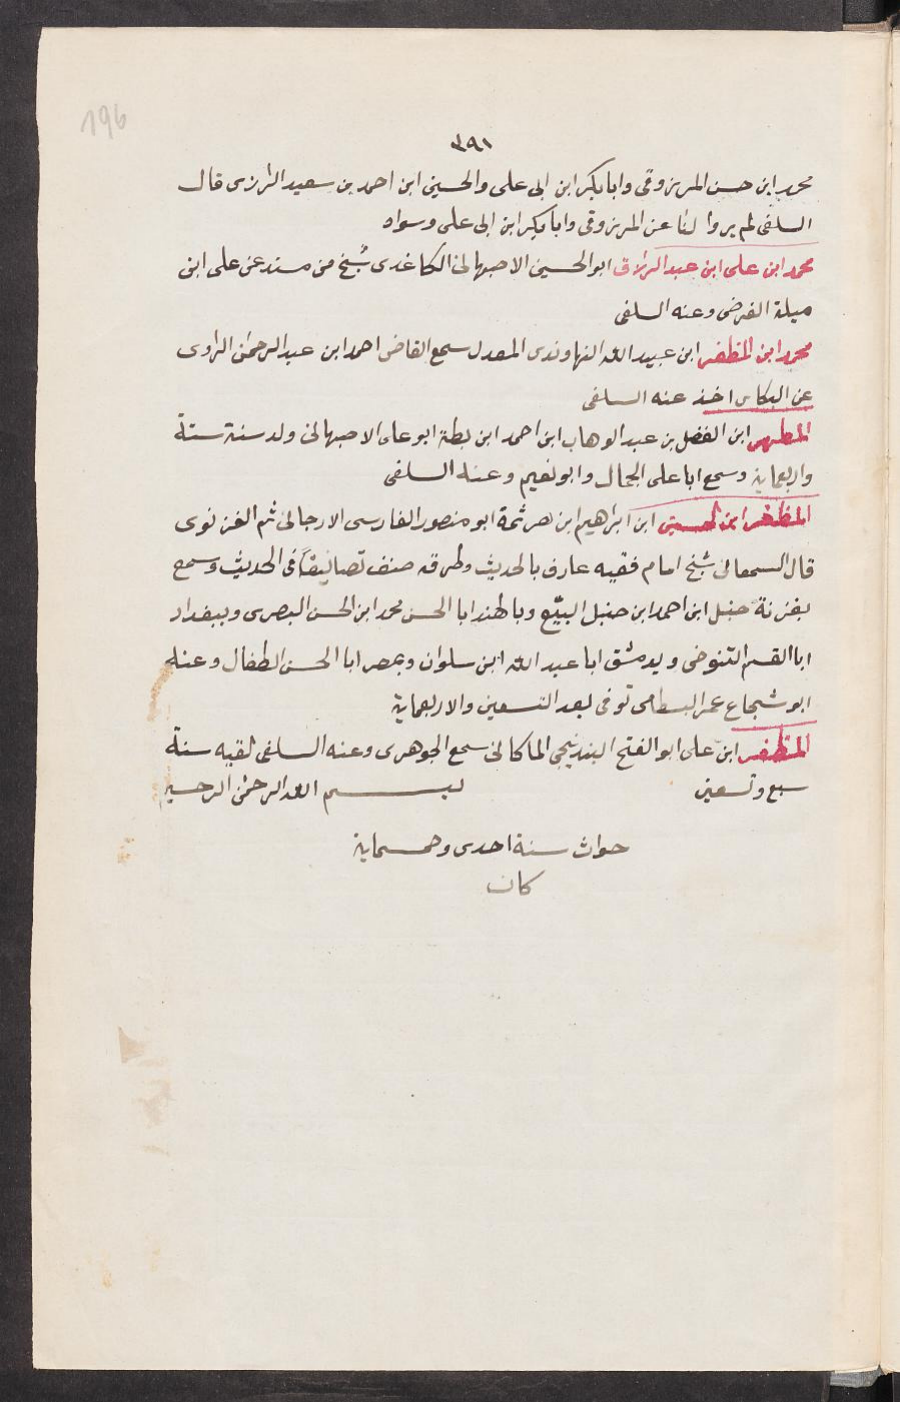 196
٣٩١
محمد ابن حسن المرزوقى وابا بكر ابن ابى على والحسين ابن احمد بن سعيد الرازى قال
السلفى لم يروا لنا عن المرزوقى وابا بكر ابن ابى على وسواه
محمد ابن على ابن عبد الرزاق ابو الحسين الاصبهانى الكاغدى شيخ من مسند عن على ابن
ميلة الفرضى وعنه السلفى
محمد ابن المظفر ابن عبيد الله النهاوندى المعدل سمع القاضى احمد ابن عبد الرحمن الراوى
عن البكاى اخذ عنه السلفى
المطهر ابن الفضل بن عبد الوهاب ابن احمد ابن بطة ابو على الاصبهانى ولد سنة ستة
واربعماية وسمع ابا على الجمال وابو نعيم وعنه السلفى
المظفر ابن الحسين ابن ابراهيم ابن هرثمة ابو منصور الفارسى الارجانى ثم الغزنوى
قال السمعانى شيخ امام فقيه عارف بالحديث وطرقه صنف تصانيفاً فى الحديث وسمع
بغزنة حنبل ابن احمد ابن حنبل البيّع وبالهند ابا الحسن محمد ابن الحسن البصرى وببغداد
ابا القسم التنوخى وبدمشق ابا عبد الله ابن سلوان وبمصر ابا الحسن الطفال وعنه
ابو شجاع عمر البسطامى توفى بعد التسعين والاربعماية
المظفر ابن على ابو الفتح البندنيجى الماكانى سمع الجوهرى وعنه السلفى لقيه سنة
سبع وتسعين بسم الله الرحمن الرحيم
حواث سنة احدى وخمسماية
كان